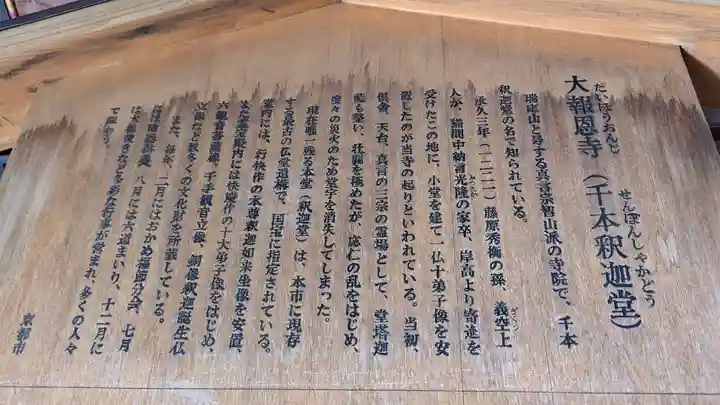 だいほうおんじ せんぼんしゃかどう
大報恩寺（千本釈迦堂）
瑞応山と号する真言宗智山派の寺院で、千本
釈迦堂の名で知られている。
承久三年（一二二一）藤原秀衡の孫、義空上
ぎくう
人が、猫間中納言光隆の家卒、岸高より寄進を
みつたか
受けたこの地に、小堂を建て一仏十弟子像を安
置したのが当寺の起りといわれている。当初、
倶舎、天台、真言の三宗の霊場として、堂塔迦
藍も整い、壮麗を極めたが、応仁の乱をはじめ、
度々の災火のため堂宇を消失してしまった。
現在唯一残る本堂（釈迦堂）は、本市に現存
する最古の仏堂遺構で、国宝に指定されている。
堂内には、行快作の本尊釈迦如来坐像を安置、
また霊宝殿内には快慶作の十大弟子像をはじめ、
六観音菩薩像、千手観音立像、銅像釈迦誕生仏
立像など数多くの文化財を所蔵している。
また、毎年、二月にはおかめ福節分会、七月
には陶器供養、八月には六道まいり、十二月に
は大根焚きなど多彩な行事が営まれ、多くの人々
で賑わう。
京都市